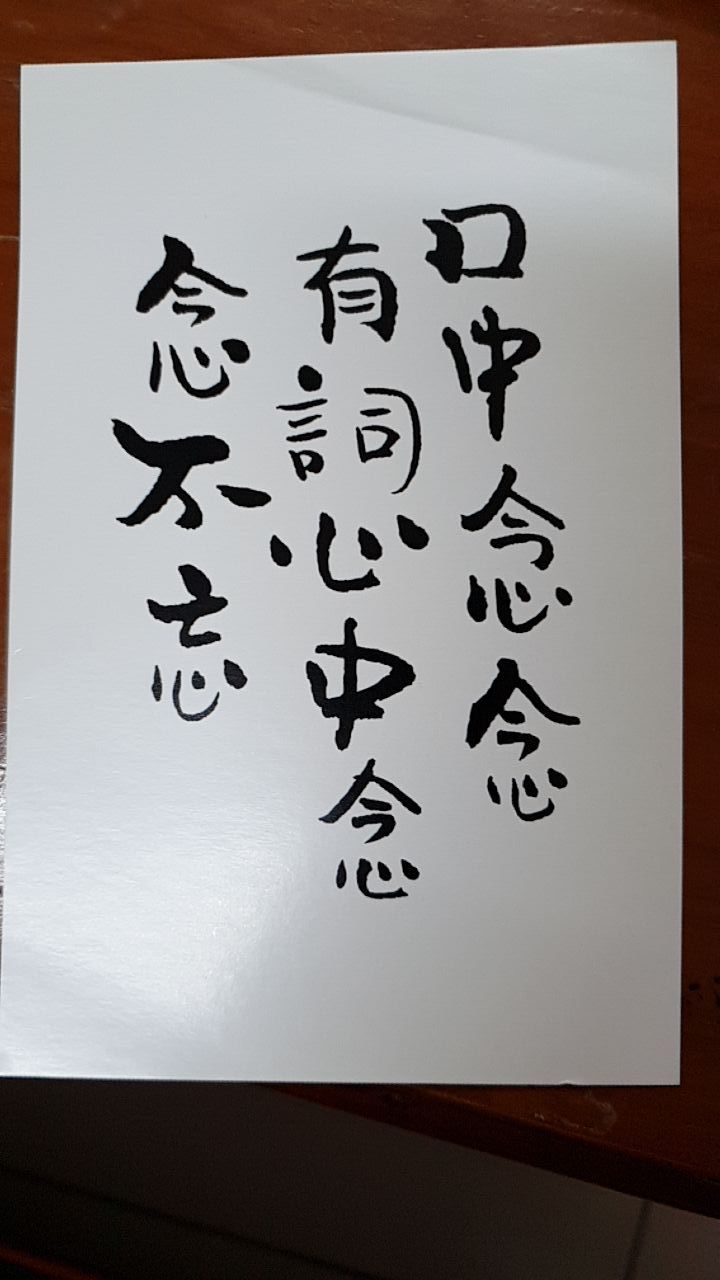 口中念念
有詞心中念
念不忘